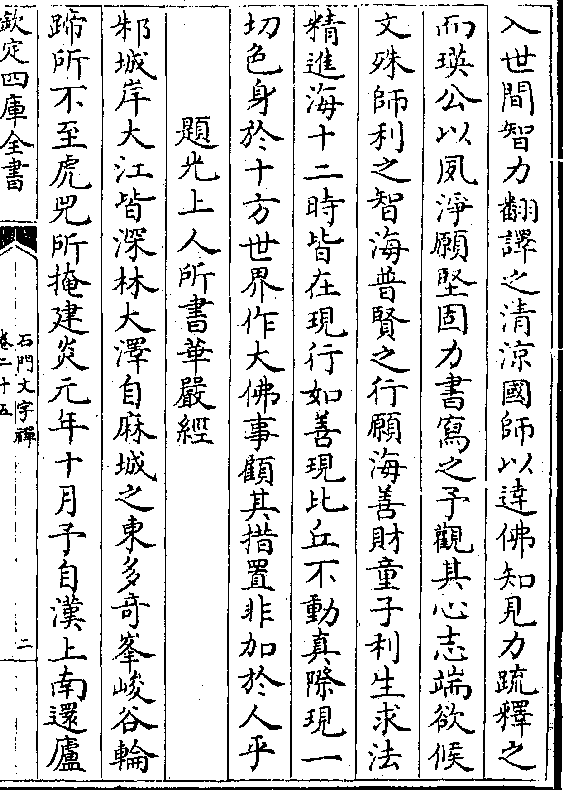 入世間智力翻譯之清涼國師以達佛知見力䟽釋之
而瑛公以夙淨願堅固力書寫之予觀其心志端欲候
文殊師利之智海普賢之行願海善財童子利生求法
精進海十二時皆在現行如善現比丘不動真際現一
切色身於十方世界作大佛事顧其措置非加於人乎
題光上人所書華嚴經
邾城岸大江皆深林大澤自麻城之東多奇峯峻谷輪
蹄所不至虎兕所掩建炎元年十月予自漢上南還廬
欽定四庫全書
石門文字禪
卷二十五
二